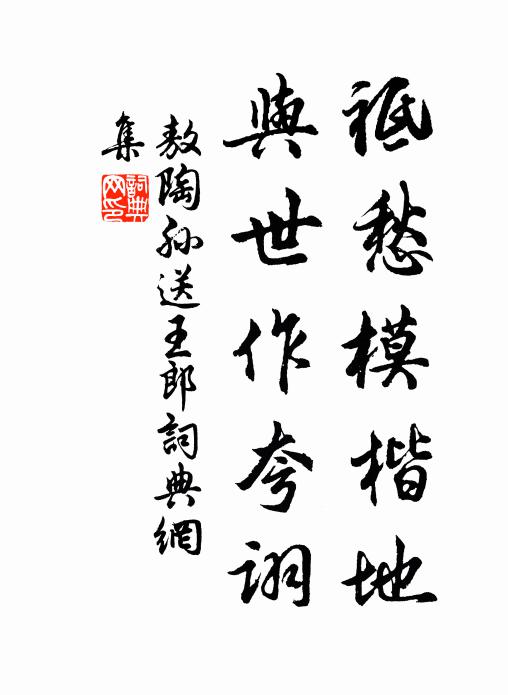 祗愁模楷地
與世作夸詡
敖陶孫送王郎詞典網
集
詞典
网印